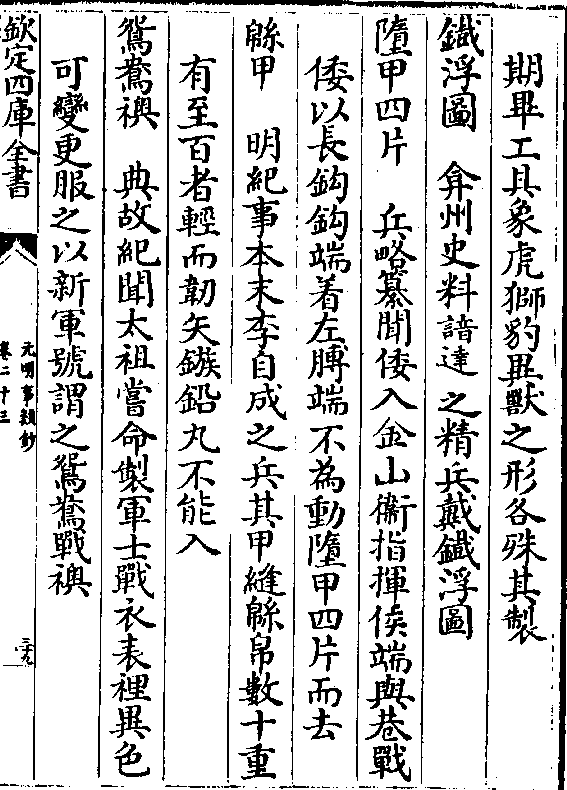 期畢工具象虎獅豹異獸之形各殊其製
鐵浮圖　弇州史料諳達之精兵戴鐵浮圖
墮甲四片　兵略纂聞倭入金山衞指揮侯端與巷戰
倭以長鈎鈎端着左膊端不為動墮甲四片而去
緜甲　明紀事本末李自成之兵其甲縫緜帛數十重
有至百者輕而韌矢鏃鉛丸不能入
鴛鴦襖　典故紀聞太祖嘗命製軍士戰衣表裡異色
可變更服之以新軍號謂之鴛鴦戰襖
欽定四庫全書
元明事類鈔
卷二十三
三十九